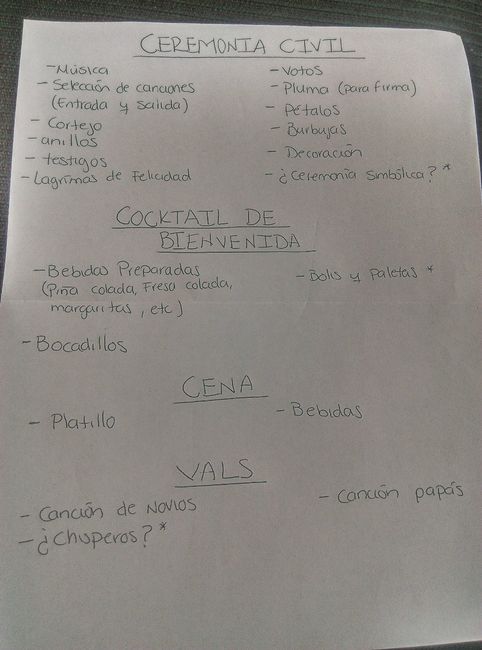 CEREMONIA CIVIL
- Música
- Selección de canciones
(Entrada y Salida)
- Cortejo
- anillos
- testigos
- Lagrimas de Felicidad
- Votos
- Pluma (para firma)
- Pétalos
- Burbujas
- Decoración
- ¿Ceremonia Simbólica? *
COCKTAIL DE
BIENVENIDA
- Bebidas Preparadas
(Piña colada, Fresa colada,
margaritas, etc)
- Bocadillos
- Bolis y Paletas *
CENA
- Platillo
- Bebidas
VALS
- Canción de Novios
- ¿Chuperos? *
- Canción papás